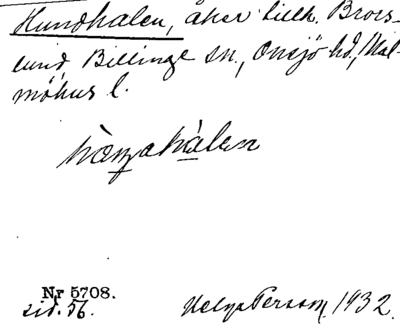 Hundhalen, åker tillh. Brors-
lund, Billinge sn., Onsjö hd., Mal-
möhus l.
Nr 5708.
sid. 56.
Helga Persson, 1932.